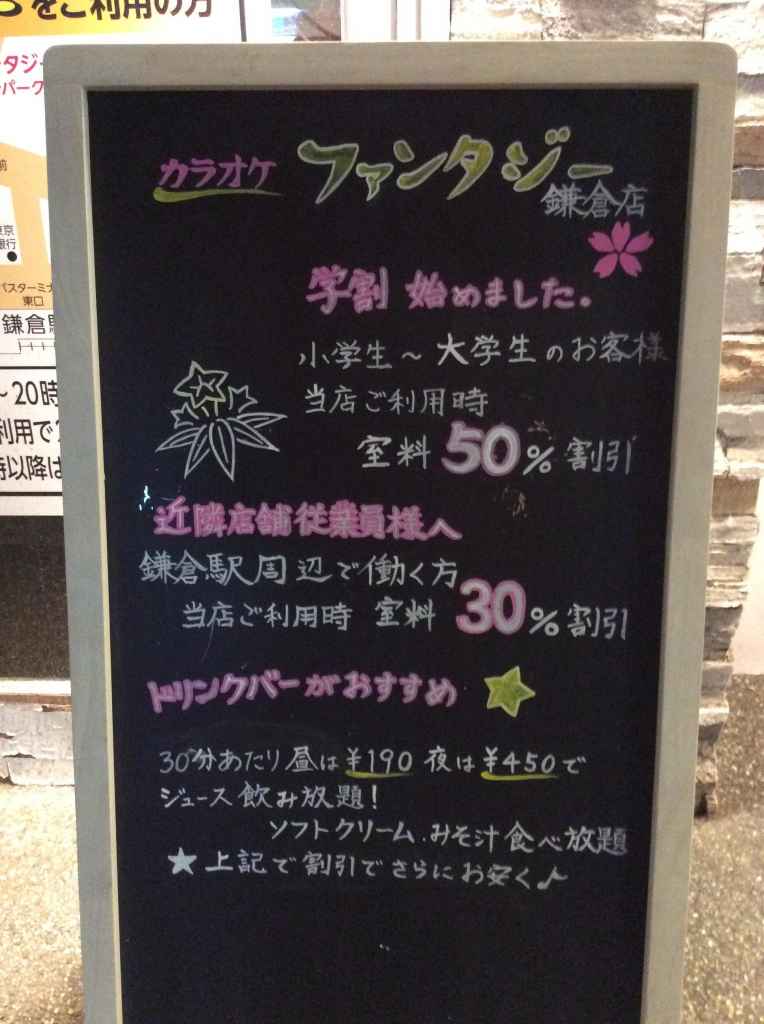 をご利用の方
タジー
パーク
前
銀行
バスターミナ
東口
鎌倉駅
～20時
利用で
時以降は
カラオケ ファンタジー
鎌倉店
学割 始めました。
小学生～大学生のお客様
当店ご利用時
室料 50%割引
近隣店舗従業員様へ
鎌倉駅周辺で働く方
当店ご利用時 室料 30%割引
ドリンクバーがおすすめ
30分あたり昼は¥190 夜は¥450で
ジュース飲み放題！
ソフトクリーム.みそ汁食べ放題
★上記で割引でさらにお安く♪